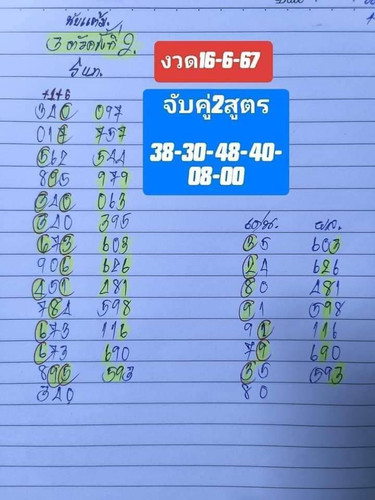 งวด16-6-67
จับคู่2สูตร
38-30-48-40-
08-00
340 097
017 757
562 544
895 979
340 063
340 395
673 603
906 626
451 481
784 598
673 116
673 690
895 593
340
35 603
24 626
80 481
91 598
91 116
79 690
35 593
80